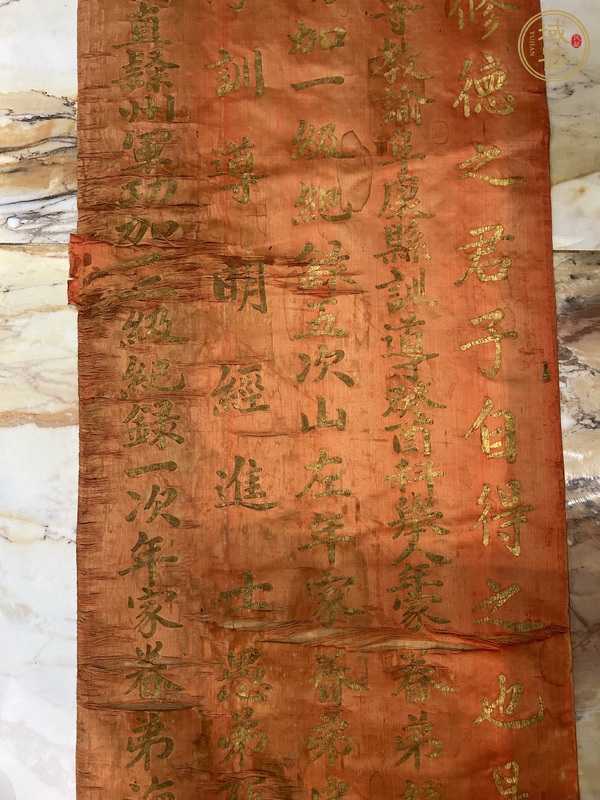 修德之君子自得之也
教諭單縣訓導癸酉科舉人年家眷弟
加一級紀錄五次山左年家眷弟
訓導明經進士愚弟
直隸州軍功加三級紀錄一次年家眷弟